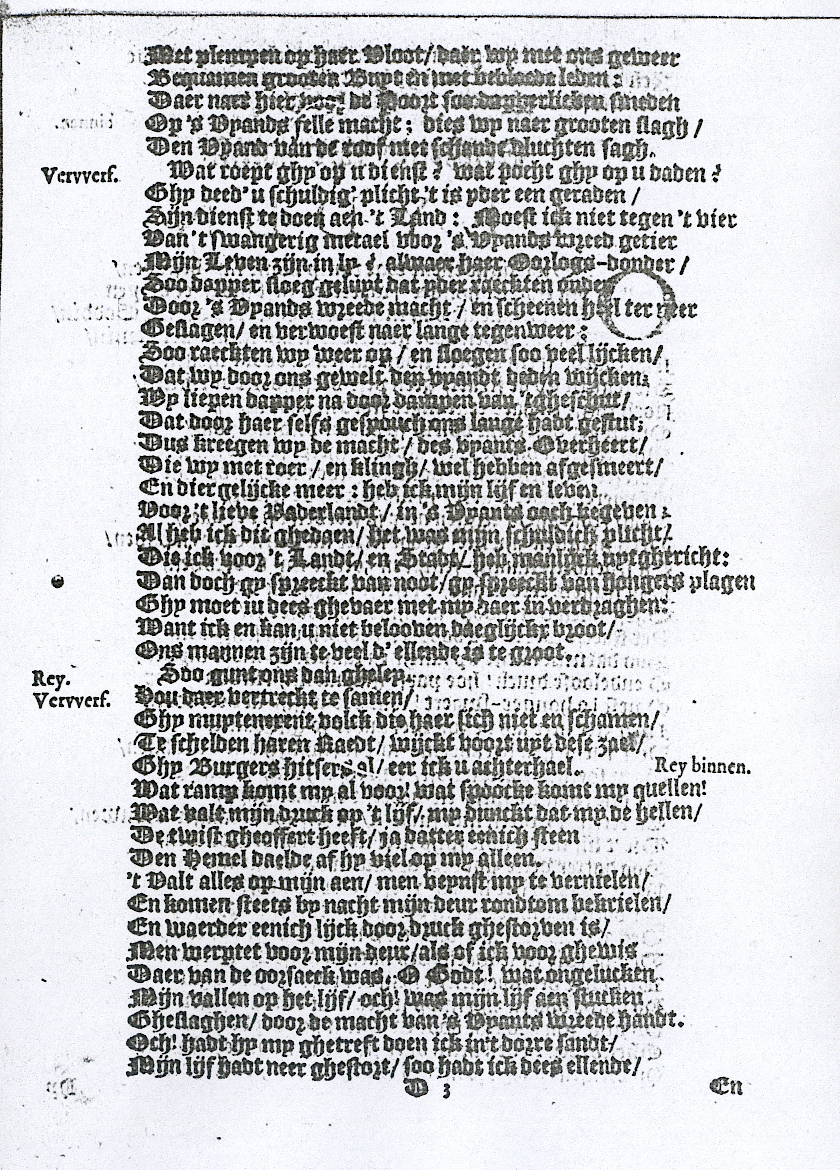 Met plempen op haer Vloot/ daer wy met ons geweer
Bequamen grooten Buyt en met bebloede leden:
Daer naer hier voor de Poort soo dapperlicken smeden
Op 's Vyands felle macht; dies wy naer grooten slagh /
Den Vyand van de roof met schande vluchten sagh.
Vervverf. Wat roept ghy op u dienst? wat pocht ghy op u daden?
Ghy deed' u schuldig' plicht, 't is yder een geraden /
Sijn dienst te doen aen 't Land: Moest ick niet tegen 't vier
Van 't swangerig metael voor 's Vyands wreed getier
Mijn Leven zijn in ly? alwaer haer Oorlogs-donder /
Soo dapper sloeg geluyt dat yder raeckten onder
Door 's Vyands wreede macht / en scheenen heel ter neer
Geslagen/ en verwoest naer lange tegenweer:
Soo raeckten wy weer op / en sloegen soo veel lijcken/
Dat wy door ons gewelt den vyandt deden wijcken;
Wy liepen dapper na door dampen van 'tgheschut/
Dat door haer selfs ons lange hadt gestut;
Dus kreegen wy de macht / des vyants Overheert/
Die wy met roer / en klingh/ wel hebben afgesmeert/
En diergelijcke meer: heb ick mijn lijf en leven
Voor 't lieve Vaderlandt / in 's Vyants oogh gegeven:
Al heb ick dit ghedaen/ het was mijn schuldich plicht/
Die ick voor 't Landt/ en Stadt/ heb manlijck uytghericht:
Dan doch gy spreeckt van noot/ gy spreeckt van hongers plagen
Ghy moet in dees ghevaer met my daer in verdraghen:
Want ick en kan u niet belooven daeglijckx broot/
Ons mannen zijn te veel d' ellende is te groot.
Rey. Soo gunt ons dan ghelen.
Vervverf. Hou daer vertreckt te samen/
Ghy muytenerent volck die haer sich niet en schamen/
Te schelden haren Raedt/ wijckt voort uyt dese zael/
Ghy Burgers hitsers al/ eer ick u achterhael. Rey binnen.
Wat ramp komt my al voor! wat spoocke komt my quellen!
Wat valt mijn druck op 't lijf/ my dunckt dat my de hellen/
De twist gheoffert heeft/ ja datter eenich steen
Den Hemel daelde af hy viel op my alleen.
't Valt alles op mijn aen/ men veynst my te vernielen/
En komen steets by nacht mijn deur rondtom bekrielen/
En waerder eenich lijck door druck ghestorven is/
Men werptet voor mijn deur/ als of ick voor ghewis
Daer van de oorsaeck was. O Godt! wat ongelucken
Mijn vallen op het lijf/ och! was mijn lijf aen stucken
Gheslaghen/ door de macht van 's Vyants wreede handt.
Och! hadt hy my ghetreft doen ick in't dorre sandt/
Mijn lijf hadt neer ghestort/ soo hadt ick dees ellende/
D 3 En